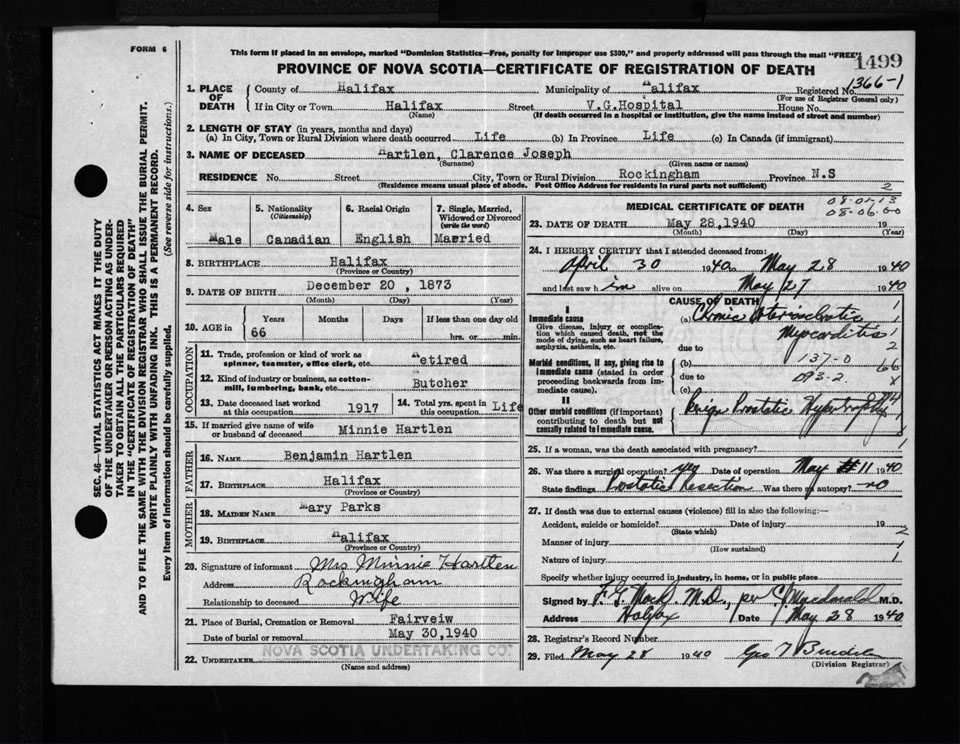 FORM 6
This form if placed in an envelope, marked "Dominion Statistics—Free, penalty for improper use $300," and properly addressed will pass through the mail "FREE"
1499
PROVINCE OF NOVA SCOTIA—CERTIFICATE OF REGISTRATION OF DEATH
1366-1
1. PLACE OF DEATH County of Halifax Municipality of Halifax Registered No.
(For use of Registrar General only)
If in City or Town Halifax Street V.G.Hospital House No.
(Name) (If death occurred in a hospital or institution, give the name instead of street and number)
2. LENGTH OF STAY (in years, months and days)
(a) In City, Town or Rural Division where death occurred Life (b) In Province Life (c) In Canada (if immigrant)
3. NAME OF DECEASED Hartlen, Clarence Joseph
(Surname) (Given name or names)
RESIDENCE No. Street City, Town or Rural Division Rockingham Province N.S
(Residence means usual place of abode. Post Office Address for residents in rural parts not sufficient) 2
4. Sex Male
5. Nationality (Citizenship) Canadian
6. Racial Origin English
7. Single, Married, Widowed or Divorced (write the word) Married
8. BIRTHPLACE Halifax
(Province or Country)
9. DATE OF BIRTH December 20, 1873
(Month) (Day) (Year)
10. AGE in Years Months Days If less than one day old
66 hrs. or min.
OCCUPATION
11. Trade, profession or kind of work as spinner, teamster, office clerk, etc. Retired
12. Kind of industry or business, as cotton-mill, lumbering, bank, etc. Butcher
13. Date deceased last worked at this occupation 1917 14. Total yrs. spent in this occupation Life
15. If married give name of wife or husband of deceased Minnie Hartlen
FATHER
16. NAME Benjamin Hartlen
17. BIRTHPLACE Halifax
(Province or Country)
MOTHER
18. MAIDEN NAME Mary Parks
19. BIRTHPLACE Halifax
(Province or Country)
20. Signature of informant Mrs Minnie Hartlen
Address Rockingham
Relationship to deceased Wife
21. Place of Burial, Cremation or Removal Fairveiw
Date of burial or removal May 30,1940
22. UNDERTAKER NOVA SCOTIA UNDERTAKING CO.
(Name and address)
MEDICAL CERTIFICATE OF DEATH
08-06-00
23. DATE OF DEATH May 28,1940 19
(Month) (Day) (Year)
24. I HEREBY CERTIFY that I attended deceased from:
April 30 1940 to May 28 1940
and last saw him alive on May 27 1940
CAUSE OF DEATH
I
Immediate cause (a) Chronic Arteriosclerotic
Give disease, injury or complication which caused death, not the mode of dying, such as heart failure, asphyxia, asthenia, etc. Myocarditis
due to
Morbid conditions, if any, giving rise to immediate cause (stated in order proceeding backwards from immediate cause). (b) 137-0
due to 093-2
II
(c)
Other morbid conditions (if important) contributing to death but not causally related to immediate cause. Benign Prostatic Hypertrophy
25. If a woman, was the death associated with pregnancy?
26. Was there a surgical operation? yes Date of operation May 11 1940
State findings Prostatic Resection Was there an autopsy? no
27. If death was due to external causes (violence) fill in also the following:—
Accident, suicide or homicide? Date of injury 19
(State which)
Manner of injury
(How sustained)
Nature of injury
Specify whether injury occurred in industry, in home, or in public place
Signed by F.G. Mack M.D., per C Macdonald M.D.
Address Halifax Date May 28 1940
28. Registrar's Record Number
29. Filed May 28 1940
(Division Registrar)
SEC. 46—VITAL STATISTICS ACT MAKES IT THE DUTY OF THE UNDERTAKER OR PERSON ACTING AS UNDERTAKER TO OBTAIN ALL THE PARTICULARS REQUIRED IN THE "CERTIFICATE OF REGISTRATION OF DEATH" AND TO FILE THE SAME WITH THE DIVISION REGISTRAR WHO SHALL ISSUE THE BURIAL PERMIT.
WRITE PLAINLY WITH UNFADING INK. THIS IS A PERMANENT RECORD.
Every item of information should be carefully supplied. (See reverse side for instructions.)